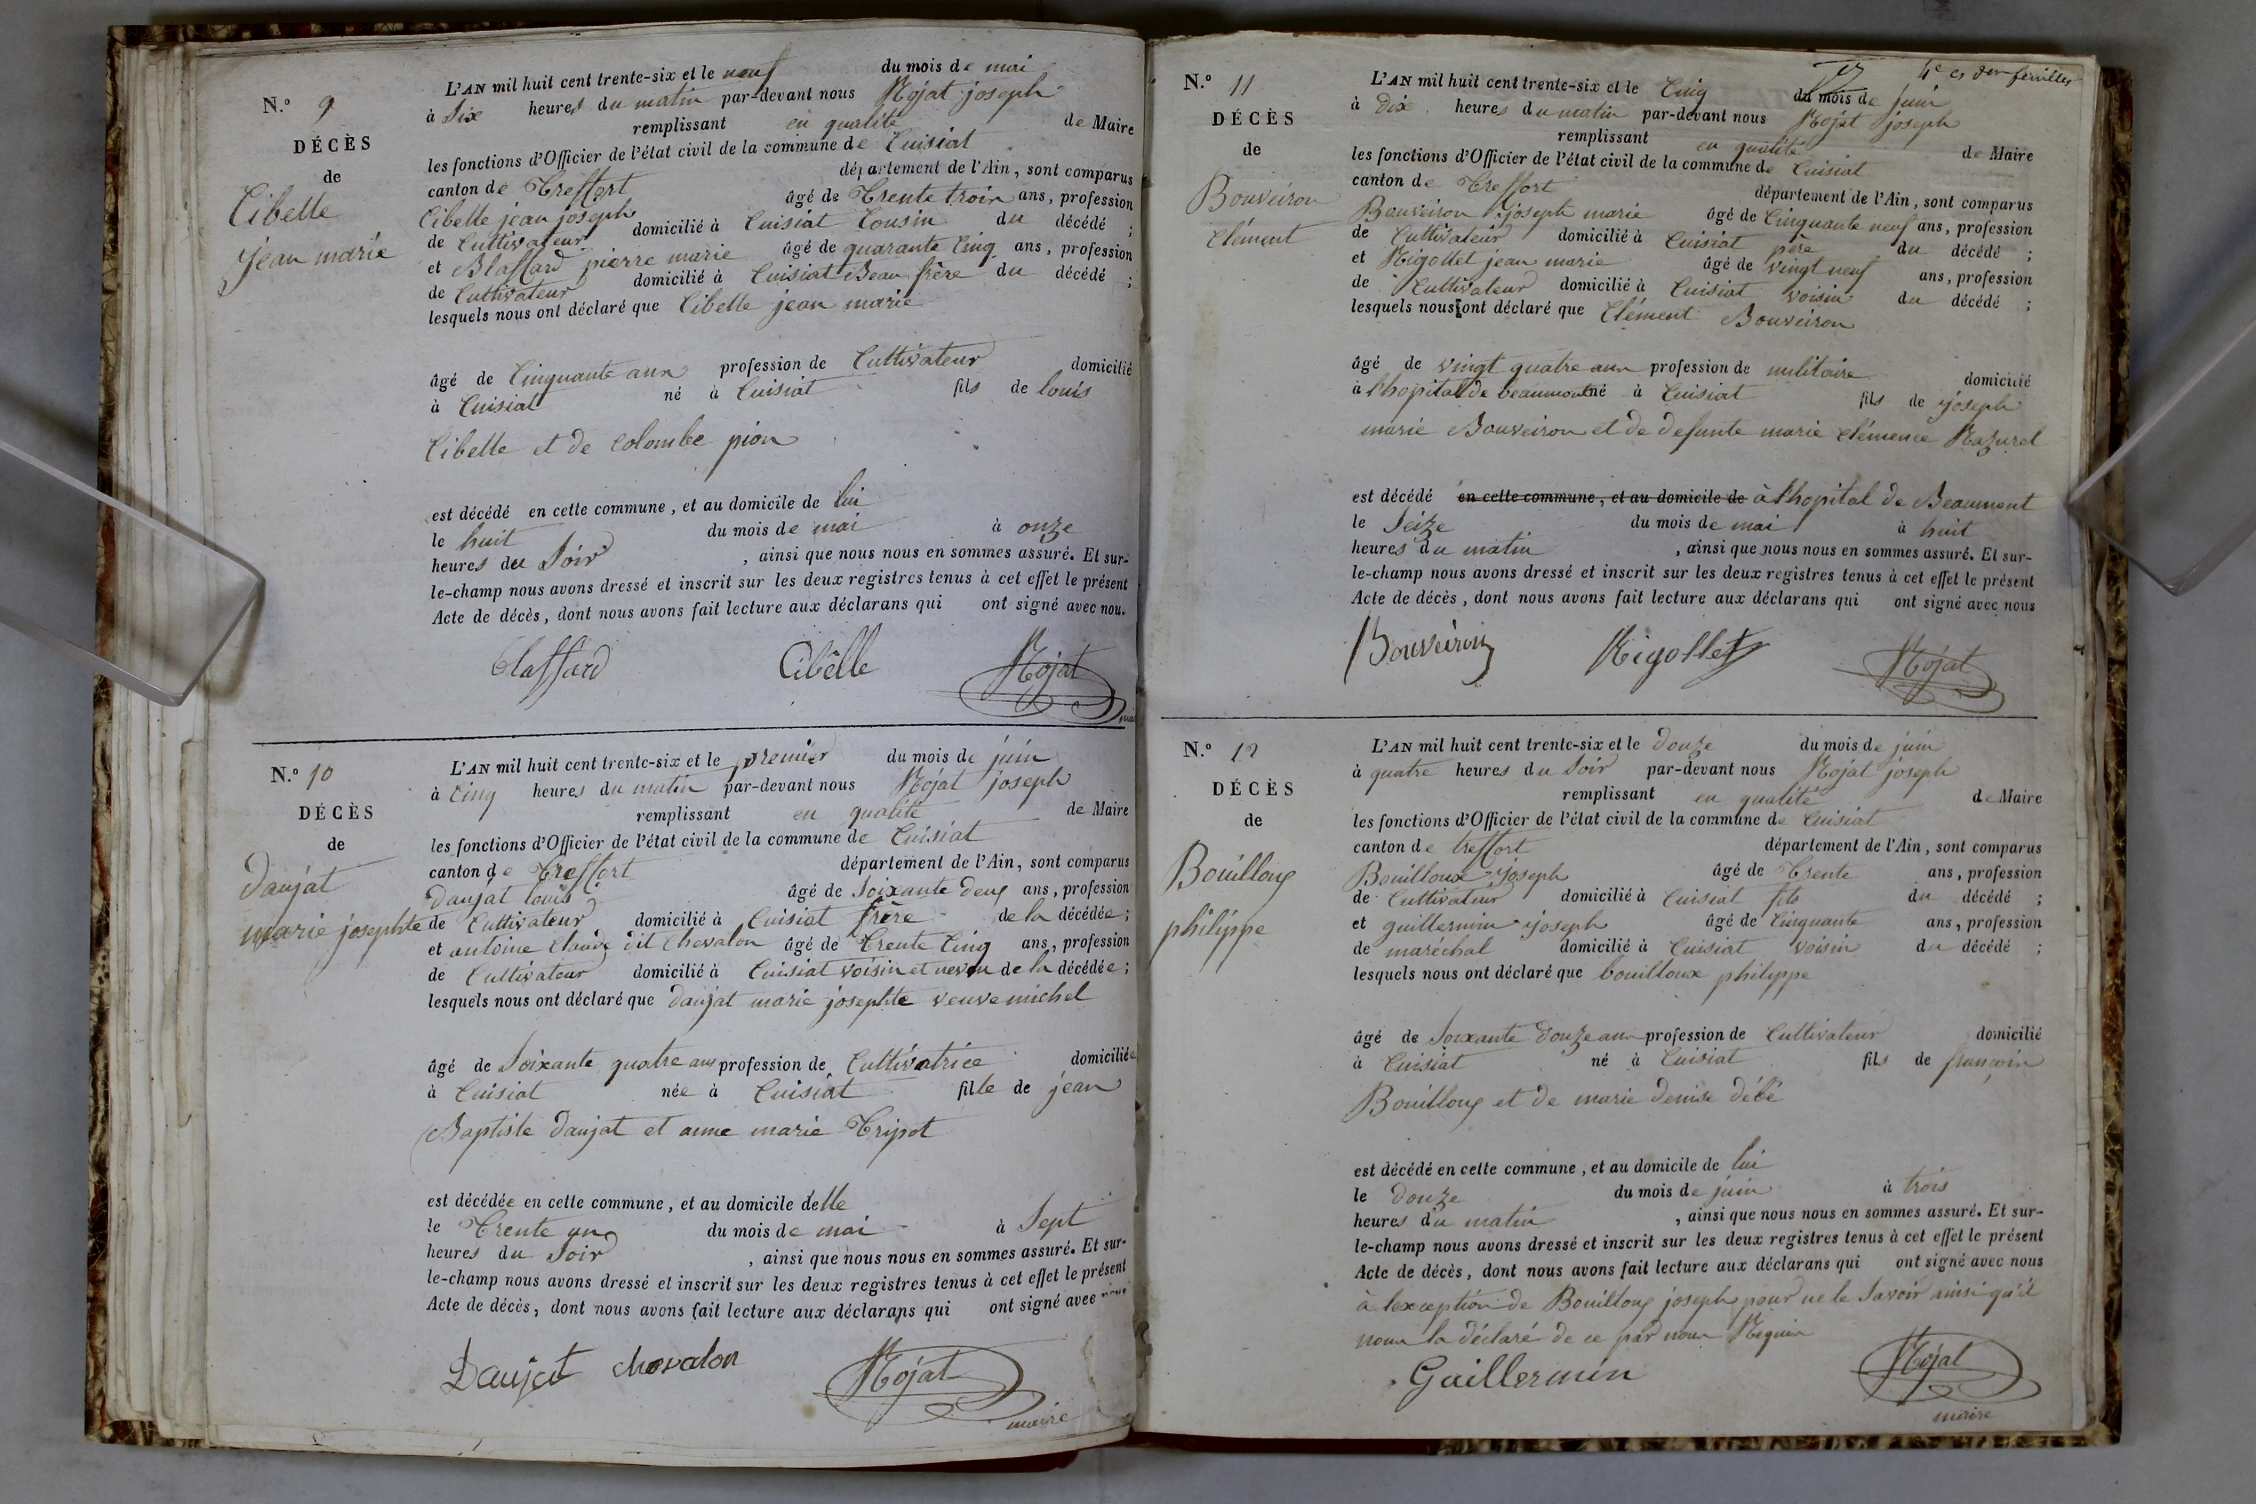 N.° 9
DÉCÈS
de
Cibelle
jean marie
L'AN mil huit cent trente-six et le neuf du mois de mai
à Six heures du matin par-devant nous Mojat joseph
remplissant en qualité de Maire
les fonctions d'Officier de l'état civil de la commune de Cuisiat
canton de Treffort département de l'Ain, sont comparus
Cibelle jean joseph âgé de Trente trois ans, profession
de Cultivateur domicilié à Cuisiat Cousin du décédé ;
et Blaffard pierre marie âgé de quarante Cinq ans, profession
de Cultivateur domicilié à Cuisiat Beau frère du décédé ;
lesquels nous ont déclaré que Cibelle jean marie
âgé de Cinquante ans profession de Cultivateur domicilié
à Cuisiat né à Cuisiat fils de louis
Cibelle et de Colombe pion
est décédé en cette commune, et au domicile de lui
le huit du mois de mai à onze
heures du Soir , ainsi que nous nous en sommes assuré. Et sur-
le-champ nous avons dressé et inscrit sur les deux registres tenus à cet effet le présent
Acte de décès, dont nous avons fait lecture aux déclarans qui ont signé avec nou.
Blaffard Cibelle Mojat
N.° 10
DÉCÈS
de
Daujat
marie josephte
L'AN mil huit cent trente-six et le premier du mois de juin
à Cinq heures du matin par-devant nous Mojat joseph
remplissant en qualité de Maire
les fonctions d'Officier de l'état civil de la commune de Cuisiat
canton de Treffort département de l'Ain, sont comparus
Daujat louis âgé de Soixante Deux ans, profession
de Cultivateur domicilié à Cuisiat frère de la décédée ;
et antoine Claude dit Chevalon âgé de Trente Cinq ans, profession
de Cultivateur domicilié à Cuisiat voisin et neveu de la décédée ;
lesquels nous ont déclaré que Daujat marie josephte veuve michel
âgé de Soixante quatre ans profession de Cultivatrice domiciliée
à Cuisiat née à Cuisiat fille de jean
Baptiste Daujat et anne marie Tripot
est décédée en cette commune, et au domicile delle
le Trente un du mois de mai à Sept
heures du Soir , ainsi que nous nous en sommes assuré. Et sur-
le-champ nous avons dressé et inscrit sur les deux registres tenus à cet effet le présent
Acte de décès, dont nous avons fait lecture aux déclarans qui ont signé avec nous
Daujat chevalon Mojat
maire
4e et Der feuilles
N.° 11
DÉCÈS
de
Bouveiron
Clément
L'AN mil huit cent trente-six et le Cinq du mois de juin
à Dix heures du matin par-devant nous Mojat joseph
remplissant en qualité de Maire
les fonctions d'Officier de l'état civil de la commune de Cuisiat
canton de Treffort département de l'Ain, sont comparus
Bouveiron joseph marie âgé de Cinquante neuf ans, profession
de Cultivateur domicilié à Cuisiat père du décédé ;
et Rigollet jean marie âgé de vingt neuf ans, profession
de Cultivateur domicilié à Cuisiat voisin du décédé ;
lesquels nous ont déclaré que Clément Bouveiron
âgé de vingt quatre ans profession de militaire domicilié
à l'hopital de beaumont né à Cuisiat fils de joseph
marie Bouveiron et de defunte marie Clémence Mazurel
est décédé en cette commune, et au domicile de à l'hopital de Beaumont
le Seize du mois de mai à huit
heures du matin , ainsi que nous nous en sommes assuré. Et sur-
le-champ nous avons dressé et inscrit sur les deux registres tenus à cet effet le présent
Acte de décès, dont nous avons fait lecture aux déclarans qui ont signé avec nous
Bouveiron Rigollet Mojat
N.° 12
DÉCÈS
de
Bouilloux
philippe
L'AN mil huit cent trente-six et le Douze du mois de juin
à quatre heures du Soir par-devant nous Mojat joseph
remplissant en qualité de Maire
les fonctions d'Officier de l'état civil de la commune de Cuisiat
canton de treffort département de l'Ain, sont comparus
Bouilloux joseph âgé de Trente ans, profession
de Cultivateur domicilié à Cuisiat fils du décédé ;
et guillermin joseph âgé de Cinquante ans, profession
de maréchal domicilié à Cuisiat voisin du décédé ;
lesquels nous ont déclaré que bouilloux philippe
âgé de Soixante Douze ans profession de Cultivateur domicilié
à Cuisiat né à Cuisiat fils de françois
Bouilloux et de marie Denise débé
est décédé en cette commune, et au domicile de lui
le Douze du mois de juin à trois
heures du matin , ainsi que nous nous en sommes assuré. Et sur-
le-champ nous avons dressé et inscrit sur les deux registres tenus à cet effet le présent
Acte de décès, dont nous avons fait lecture aux déclarans qui ont signé avec nous
à lexception de Bouilloux joseph pour ne le Savoir ainsi qu'il
nous la déclaré de ce par nous Requis
Guillermin Mojat
maire